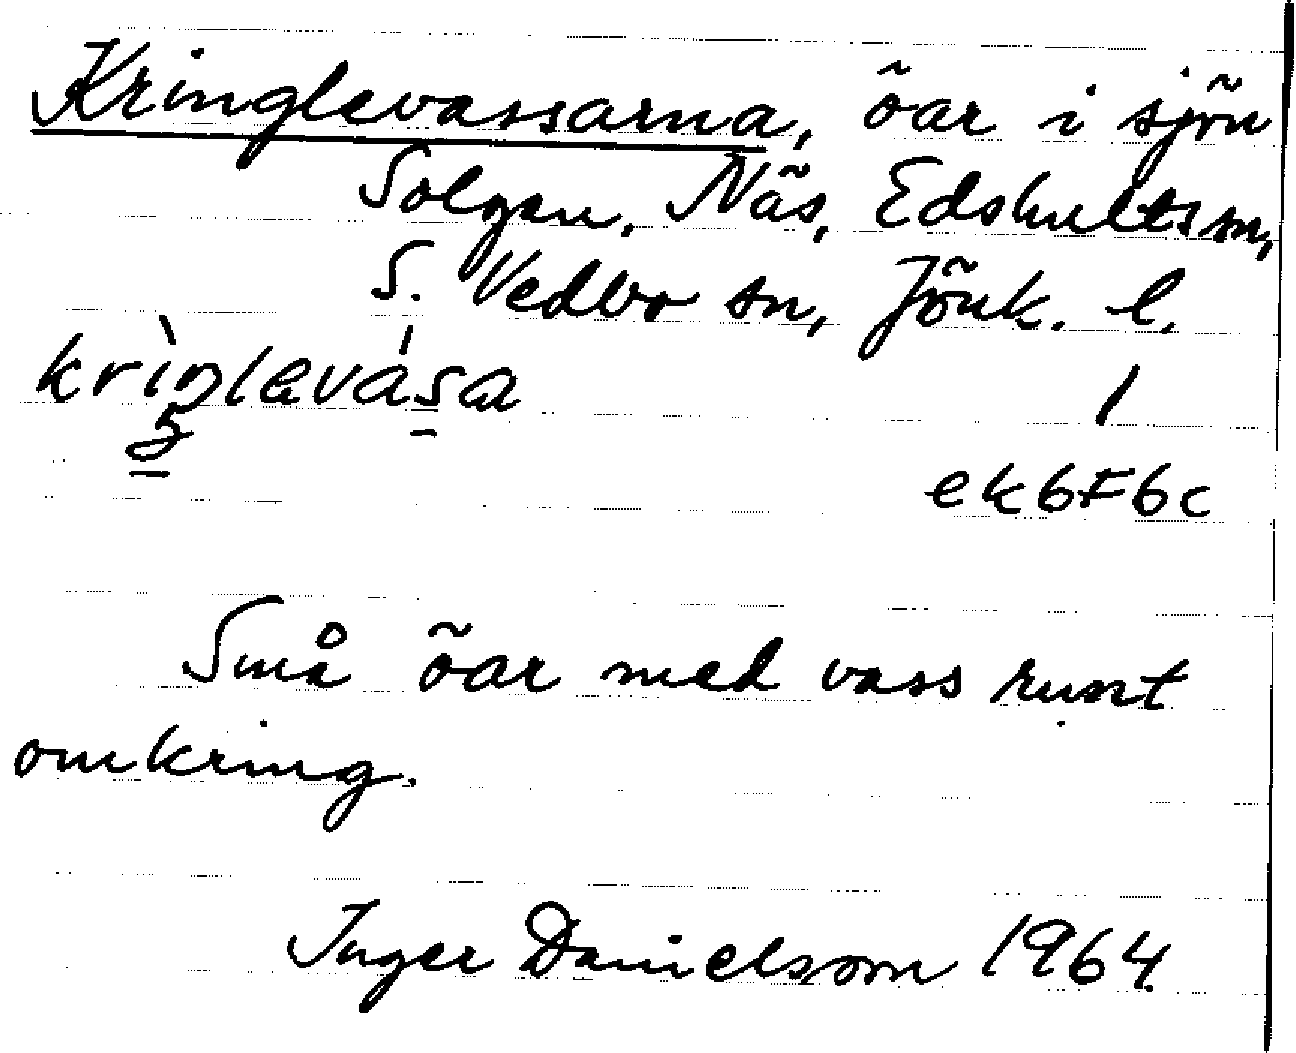 Kringlevassarna, öar i sjön
Solgen. Näs, Edshults sn,
S. Vedbo sn, Jönk. l.
krìŋlavása
1
ek6F6c
Små öar med vass runt
omkring.
Inger Danielsson 1964